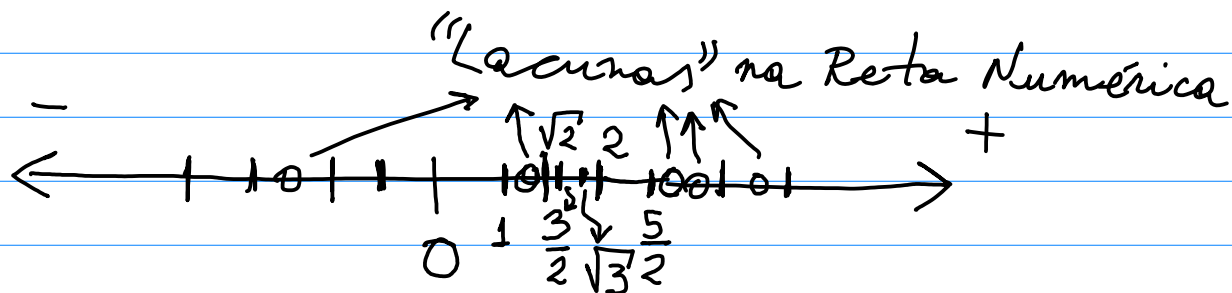 "Lacunas" na Reta Numérica
− +
√2 2
0 1 3/2 √3 5/2